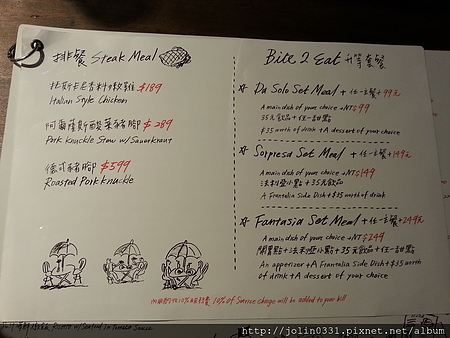 排餐 Steak Meal
托斯卡尼香料嫩雞 $189
Italian Style Chicken
阿爾薩斯酸菜豬腳 $289
Pork Knuckle Stew w/ Sauerkraut
德式豬腳 $599
Roasted Pork Knuckle
內用酌收10%服務費 10% of Service charge will be added to your bill
Bite 2 Eat 升等套餐
Da Solo Set Meal + 任一主餐+99元
A main dish of your choice +NT$99
35元飲品+任一甜點
$35 worth of drink + A dessert of your choice
Sorpresa Set Meal + 任一主餐+149元
A main dish of your choice +NT$149
法利小點+35元飲品
A Frantalia Side Dish +$35 worth of drink
Fantasia Set Meal + 任一主餐+249元
A main dish of your choice +NT$249
開胃點+法利小點+35元飲品+任一甜點
An appetizer +A Frantalia Side Dish +$35 worth
of drink +A dessert of your choice
Risotto w/ Seafood in Tomato Sauce
http://jolin0331.pixnet.net/album